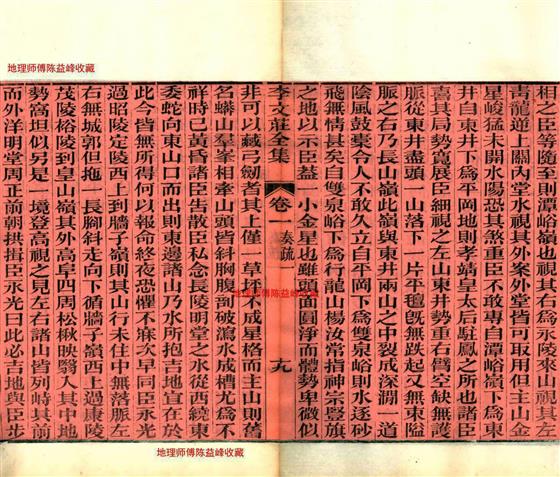 地理师傅陈益峰收藏
相之臣等隨至則東一山其右爲永陵來山視其左
青龍逆上關內堂水視其外案外堂皆可取用但主山金
星峻猛未開水陽恐其煞重臣不敢專自潭峪嶺下爲東
井自東井下爲平岡地則孝靖皇太后駐鳳之所也諸臣
喜其局勢寬展臣細視之左山東井勢重右臂空缺無護
脈從東井盡頭一山落下一片平氊旣無跌起又無束隘
脈之右乃長山嶺此嶺與東井兩山之中裂成深澗一道
陰風鼓橐令人不敢久立自平岡下爲雙泉峪則水逐砂
飛無情甚矣自雙泉峪下爲行龍山楊汝常指神宗豐旗
之地以示臣蓋一小金星也雖頭面圓淨而體勢卑微似
李文莊全集
卷一
奏疏一
十九
非可以藏弓劒者其上僅一草木不成星格而主山則舊
名蟒山羣峯相牽山頭皆斜胸腹剖破瀉水成槽尤爲不
祥時已黃昏諸臣告散臣私念長陵明堂之水從西繞東
委蛇向東山口而出則東邊諸山乃水所抱吉地宜在於
此今皆無所得何以報命終夜恐懼不寐次早同臣永光
過昭陵定陵西上到牆子嶺則其山行未住中無落脈左
右無城郭但拖一長腳斜走向下循牆子嶺西上過康陵
茂陵裕陵到皇山嶺其外高阜四周松楸映翳入其中地
勢窩坦似另是一境登高視之見左右諸山皆列峙其前
而外洋明堂周正前朝拱揖臣永光曰此必吉地與臣步
地理师傅陈益峰收藏
地理师傅陈益峰收藏